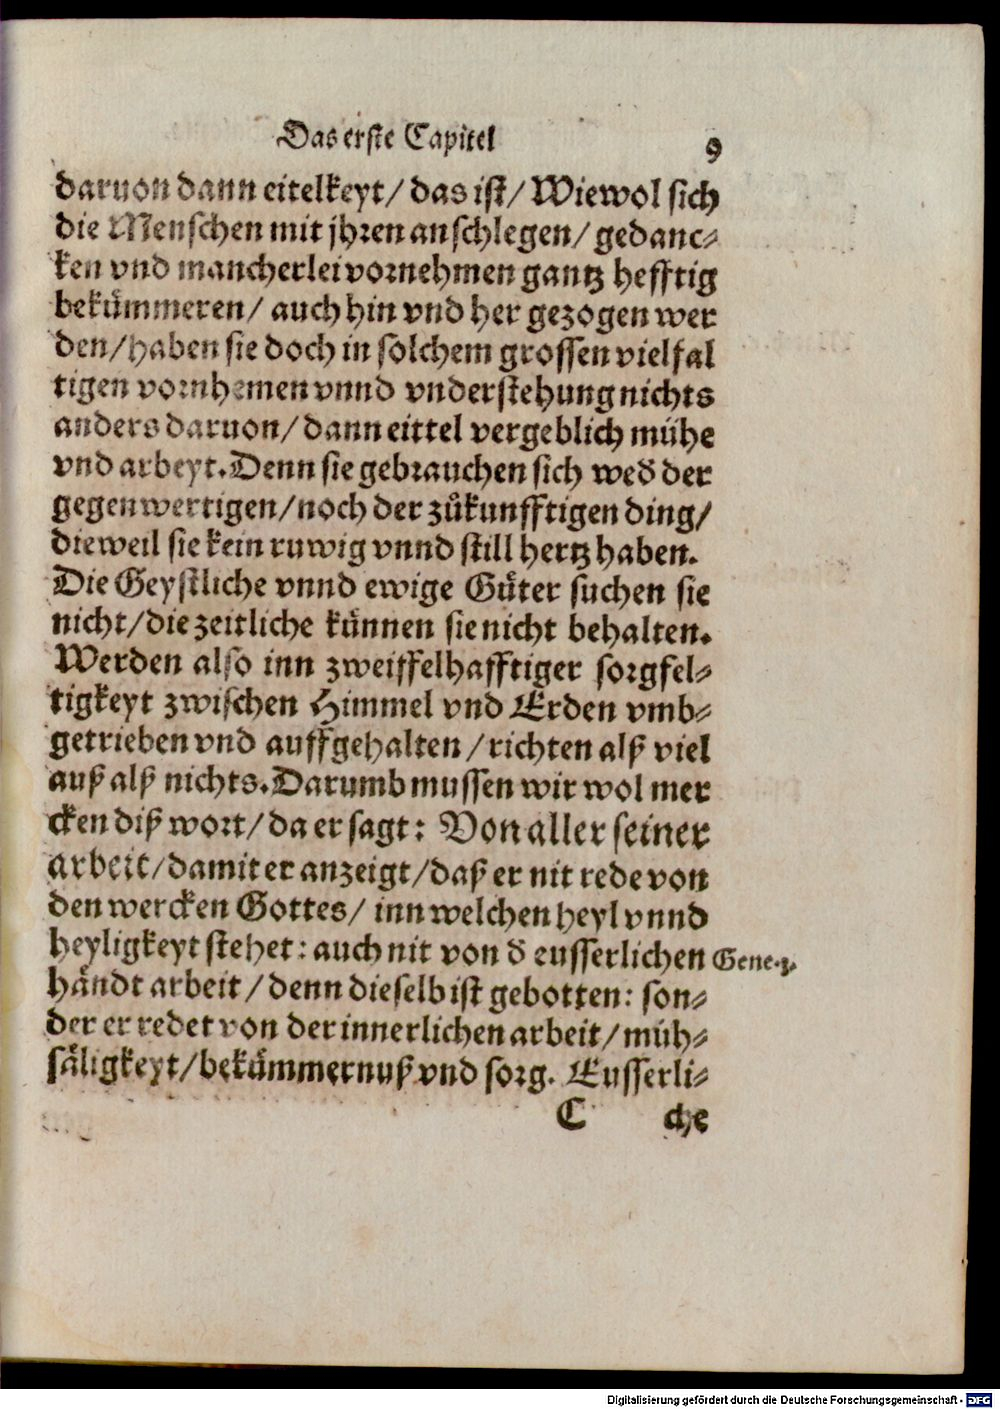 Das erste Capitel
9
daruon dann eitelkeyt/ das ist/ Wiewol sich
die Menschen mit jhren anschlegen/ gedanc⸗
ken vnd mancherlei vornehmen gantz hefftig
bekümmeren/ auch hin vnd her gezogen wer
den/ haben sie doch in solchem grossen vielfal
tigen vornhemen vnnd vnderstehung nichts
anders daruon/ dann eittel vergeblich mühe
vnd arbeyt. Denn sie gebrauchen sich wed̕ der
gegenwertigen/ noch der zůkunfftigen ding/
dieweil sie kein ruwig vnnd still hertz haben.
Die Geystliche vnnd ewige Gůter suchen sie
nicht/ die zeitliche künnen sie nicht behalten.
Werden also inn zweiffelhafftiger sorgfel⸗
tigkeyt zwischen Himmel vnd Erden vmb⸗
getrieben vnd auffgehalten/ richten alß viel
auß alß nichts. Darumb mussen wir wol mer
cken diß wort/ da er sagt: Von aller seiner
arbeit/ damit er anzeigt/ daß er nit rede von
den wercken Gottes/ inn welchen heyl vnnd
heyligkeyt stehet: auch nit von d̕ eusserlichen
Gene.3.
håndt arbeit/ denn dieselb ist gebotten: son⸗
der er redet von der innerlichen arbeit/ müh⸗
säligkeyt/ bekümmernuß vnd sorg. Eusserli⸗
C che
Digitalisierung gefördert durch die Deutsche Forschungsgemeinschaft - DFG